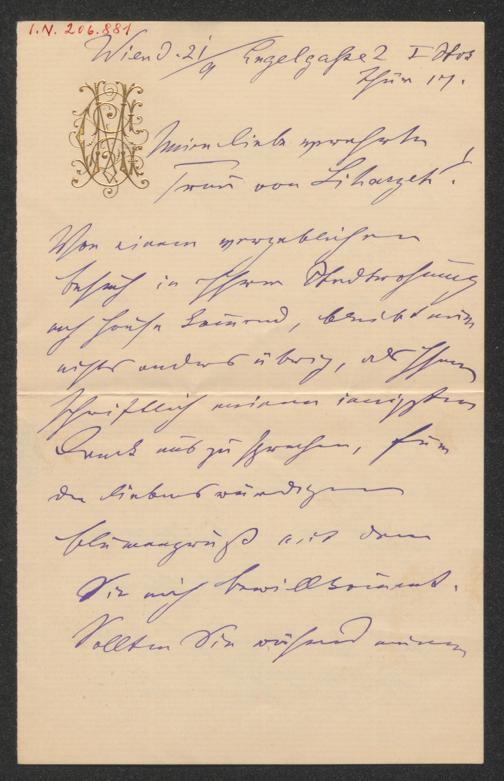 I.N. 206.881
Wien d. 21/9 Engelgasse 2 I Stock
Thür 17.
Meine liebe verehrte
Frau von Littrow!
Von einem vergeblichen
Besuch in Ihrer Stadtwohnung
nach Hause kommend, bleibt mir
nichts anders übrig, als Ihnen
schriftlich meinen innigsten
Dank auszusprechen, für
den liebenswürdigen
Blumengruß mit dem
Sie mich bewillkommt.
Sollten Sie während meiner